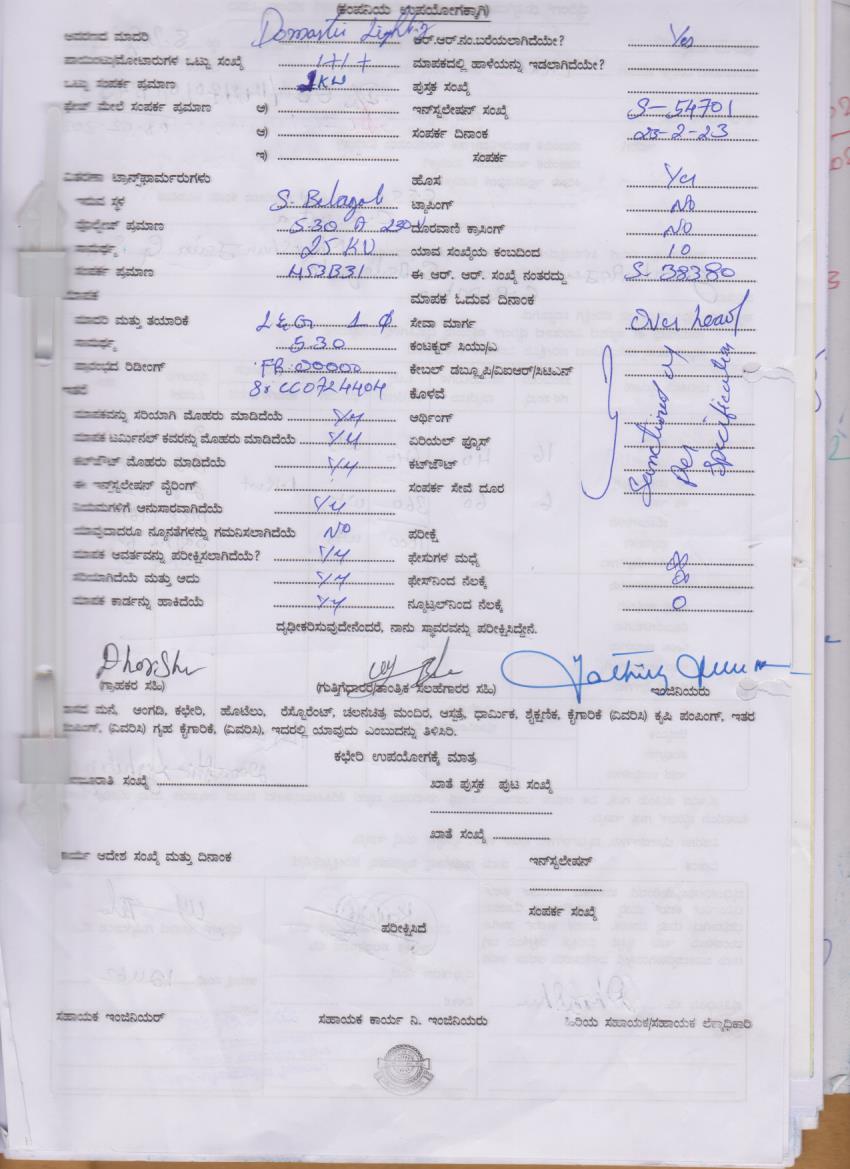 (ಕಂಪನಿಯ ಉಪಯೋಗಕ್ಕಾಗಿ)
ಮಾದರಿ Domestic Lighting ಆರ್.ಆರ್.ನಂ.ಬರೆಯಲಾಗಿದೆಯೇ? Yes
ಒಟ್ಟು ಸಂಖ್ಯೆ 1+1+ ಮಾಪಕದಲ್ಲಿ ಹಾಳೆಯನ್ನು ಇಡಲಾಗಿದೆಯೇ?
ಒಟ್ಟು ಸಂಪರ್ಕ ಪ್ರಮಾಣ 1KW ಪುಸ್ತಕ ಸಂಖ್ಯೆ
ಮೇಲೆ ಸಂಪರ್ಕ ಪ್ರಮಾಣ ಅ) ಇನ್‌ಸ್ಟಲೇಷನ್ ಸಂಖ್ಯೆ S-54701
ಆ) ಸಂಪರ್ಕ ದಿನಾಂಕ 23-2-23
ಇ) ಸಂಪರ್ಕ
ವಿತರಣಾ ಟ್ರಾನ್ಸ್‌ಫಾರ್ಮರುಗಳು ಹೊಸ Yes
ಇರುವ ಸ್ಥಳ S. Belagola ಟ್ಯಾಪಿಂಗ್ NO
ಪ್ರಮಾಣ 5.30 A 230 V ದೂರವಾಣಿ ಕ್ರಾಸಿಂಗ್ NO
ಸಾಮರ್ಥ್ಯ 25 KV ಯಾವ ಸಂಖ್ಯೆಯ ಕಂಬದಿಂದ 10
ಸಂಪರ್ಕ ಪ್ರಮಾಣ 453B31 ಈ ಆರ್. ಆರ್. ಸಂಖ್ಯೆ ನಂತರದ್ದು S-38380
ಮಾಪಕ ಮಾಪಕ ಓದುವ ದಿನಾಂಕ
ಮಾದರಿ ಮತ್ತು ತಯಾರಿಕೆ L&G 1 Φ ಸೇವಾ ಮಾರ್ಗ Over head
ಸಾಮರ್ಥ್ಯ 5.30 ಕಂಟಕ್ಟರ್ ಸಿಯು/ಎ
ಪ್ರಾರಂಭದ ರಿಡೀಂಗ್ FR: 00000 ಕೇಬಲ್ ಡಬ್ಲ್ಯೂಪಿ/ವಿಐಆರ್/ಸಿಟಿಎನ್
ಇತರೆ CC0724404 ಕೊಳವೆ
ಮಾಪಕವನ್ನು ಸರಿಯಾಗಿ ಮೊಹರು ಮಾಡಿದೆಯೆ Yes ಅರ್ಥಿಂಗ್
ಮಾಪಕ ಟರ್ಮಿನಲ್ ಕವರನ್ನು ಮೊಹರು ಮಾಡಿದೆಯೆ Yes ಏರಿಯಲ್ ಫ್ಯೂಸ್
ಕಟ್‌ಔಟ್ ಮೊಹರು ಮಾಡಿದೆಯೆ Yes ಕಟ್‌ಔಟ್
ಈ ಇನ್‌ಸ್ಟಲೇಷನ್ ವೈರಿಂಗ್ ಸಂಪರ್ಕ ಸೇವೆ ದೂರ
Sanctioned as per specification
ನಿಯಮಗಳಿಗೆ ಅನುಸಾರವಾಗಿದೆಯೆ Yes
ಯಾವುದಾದರೂ ನ್ಯೂನತೆಗಳನ್ನು ಗಮನಿಸಲಾಗಿದೆಯೆ NO ಪರೀಕ್ಷೆ
ಮಾಪಕ ಆವರ್ತವನ್ನು ಪರೀಕ್ಷಿಸಲಾಗಿದೆಯೆ? Yes ಫೇಸುಗಳ ಮಧ್ಯೆ
ಸರಿಯಾಗಿದೆಯೆ ಮತ್ತು ಅದು Yes ಫೇಸ್‌ನಿಂದ ನೆಲಕ್ಕೆ
ಮಾಪಕ ಕಾರ್ಡನ್ನು ಹಾಕಿದೆಯೆ Yes ನ್ಯೂಟ್ರಲ್‌ನಿಂದ ನೆಲಕ್ಕೆ 0
ದೃಢೀಕರಿಸುವುದೇನೆಂದರೆ, ನಾನು ಸ್ಥಾವರವನ್ನು ಪರೀಕ್ಷಿಸಿದ್ದೇನೆ.
(ಗ್ರಾಹಕರ ಸಹಿ) (ಗುತ್ತಿಗೆದಾರರ/ತಾಂತ್ರಿಕ ಸಲಹೆಗಾರರ ಸಹಿ) ಇಂಜಿನಿಯರು
ವಾಸದ ಮನೆ, ಅಂಗಡಿ, ಕಛೇರಿ, ಹೊಟೇಲು, ರೆಸ್ಟೊರೆಂಟ್, ಚಲನಚಿತ್ರ ಮಂದಿರ, ಆಸ್ಪತ್ರೆ, ಧಾರ್ಮಿಕ, ಶೈಕ್ಷಣಿಕ, ಕೈಗಾರಿಕೆ (ವಿವರಿಸಿ) ಕೃಷಿ ಪಂಪಿಂಗ್, ಇತರ
ಪಂಪಿಂಗ್, (ವಿವರಿಸಿ) ಗೃಹ ಕೈಗಾರಿಕೆ, (ವಿವರಿಸಿ), ಇದರಲ್ಲಿ ಯಾವುದು ಎಂಬುದನ್ನು ತಿಳಿಸಿರಿ.
ಕಛೇರಿ ಉಪಯೋಗಕ್ಕೆ ಮಾತ್ರ
ಸಂಖ್ಯೆ ಖಾತೆ ಪುಸ್ತಕ ಪುಟ ಸಂಖ್ಯೆ
ಖಾತೆ ಸಂಖ್ಯೆ
ಕಾರ್ಯ ಆದೇಶ ಸಂಖ್ಯೆ ಮತ್ತು ದಿನಾಂಕ ಇನ್‌ಸ್ಟಲೇಷನ್
ಸಂಪರ್ಕ ಸಂಖ್ಯೆ
ಪರೀಕ್ಷಿಸಿದೆ
ಸಹಾಯಕ ಇಂಜಿನಿಯರ್ ಸಹಾಯಕ ಕಾರ್ಯ ನಿ. ಇಂಜಿನಿಯರು ಹಿರಿಯ ಸಹಾಯಕ/ಸಹಾಯಕ ಲೆಕ್ಕಾಧಿಕಾರಿ